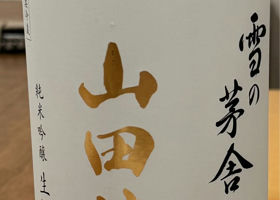 雪の茅舎
山田
純米吟醸 生